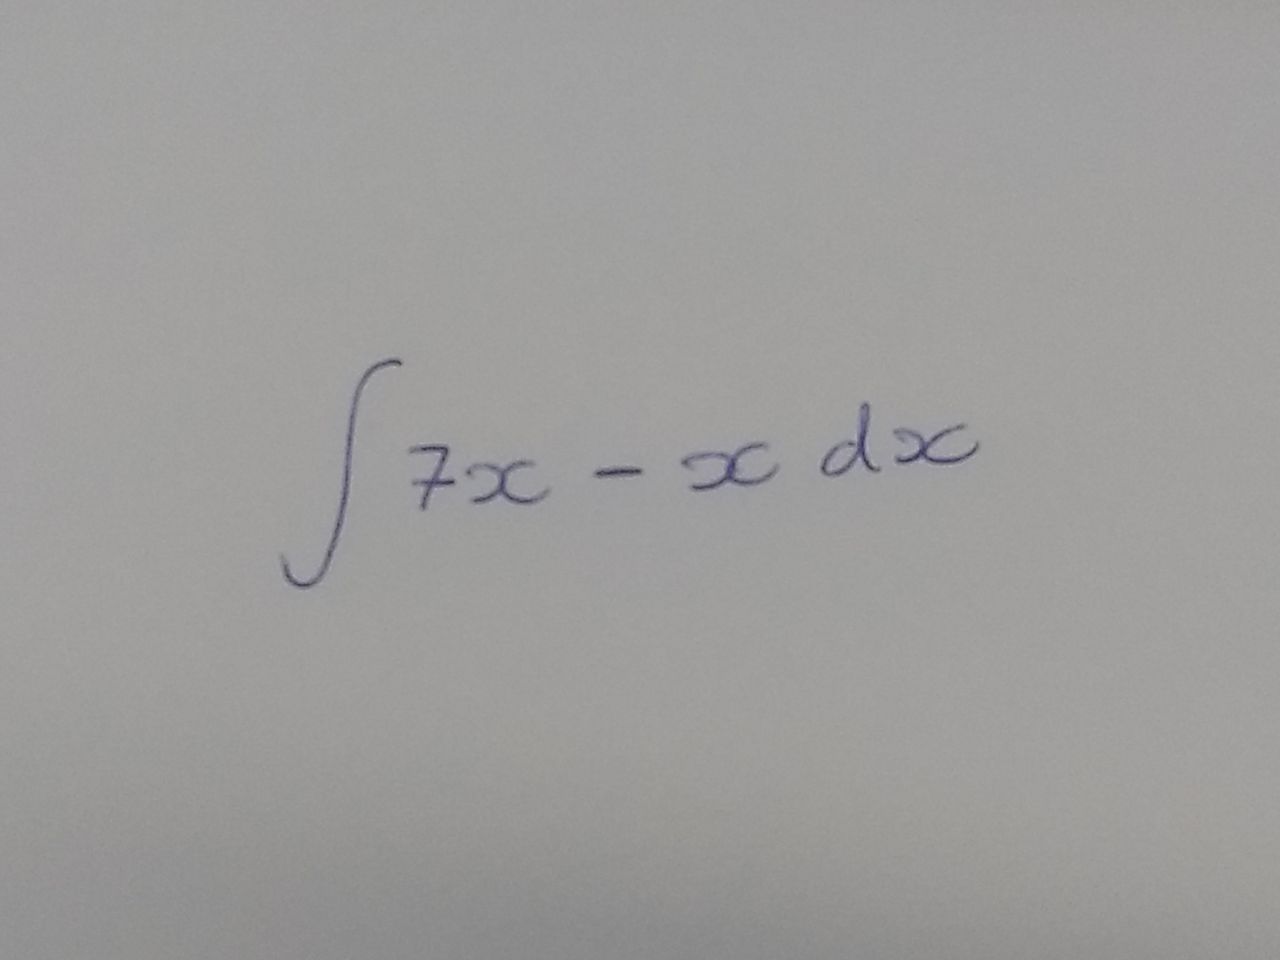 ∫ 7x - x dx